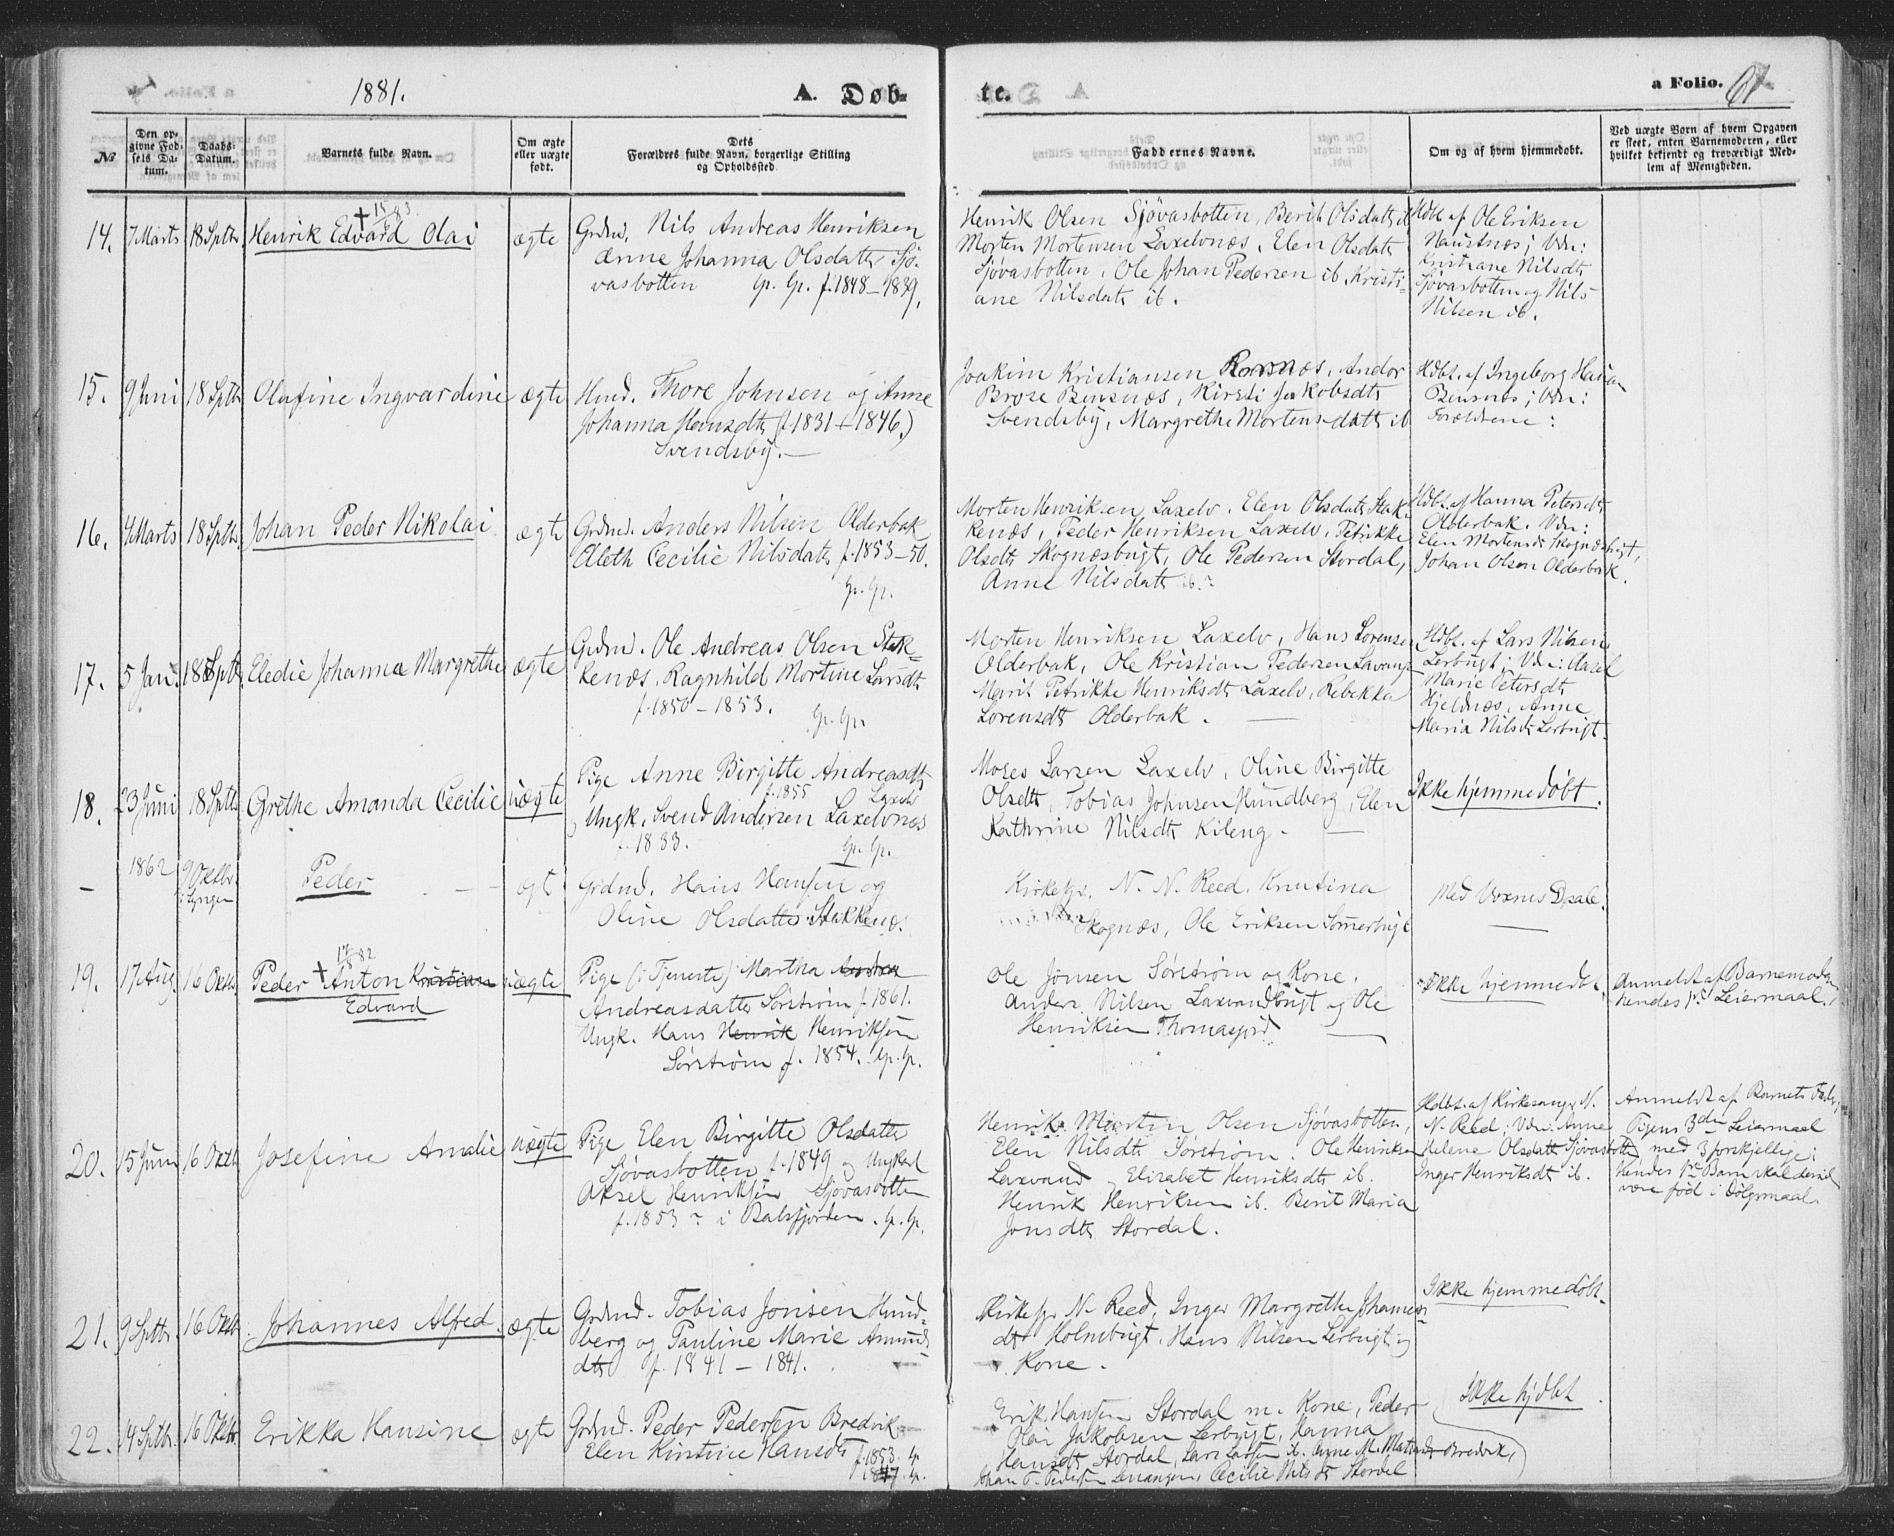 1881.
A. Døb-
te.
a Folio. 61
№
Den op-
givne Fød-
sels Da-
tum.
Daabs-
Datum.
Barnets fulde Navn.
Om ægte
eller uægte
født.
Dets
Forældres fulde Navn, borgerlige Stilling
og Opholdssted
Faddernes Navne.
Om og af hvem hjemmedøbt.
Ved uægte Børn af hvem Opgaven
er skeet, enten Barnemoderen, eller
hvilket bekjendt og troværdigt Med-
lem af Menigheden.
14. 7 Marts 18 Septbr Henrik Edvard Olai ægte
† 1883
Grdmd. Nils Andreas Henriksen
Anne Johanna Olsdattr Sjø-
vasbotten Gp. Gp. f. 1848 – 1839.
Henrik Olsen Sjøvasbotten, Berit Olsdattr ib
Morten Mortensen Laxelvnæs, Elen Olsdattr
Sjøvasbotten, Ole Johan Pedersen ib, Kristi-
ane Nilsdatr ib.
Hdbt. af Ole Eriksen
Naustnæs; Vdn:
Kristiane Nilsdtr
Sjøvasbotten og Nils
Nilsen ib.
15. 9 Juni 18 Septbr Olufine Ingvardine ægte
Hmd. Thore Johnsen og Anne
Johanna Hansdtr (f. 1831 + 1846.)
Svendsby. —
Joakim Kristiansen Ramnæs, Andor
Brose Bensnæs, Kirsti Jakobsdtr
Svendsby, Margrethe Mortensdatr ib
Hdbt. af Ingeborg Hansen
Bensnæs; Vdn:
Forældrene:
16. 4 Marts 18 Septbr. Johan Peder Nikolai ægte
Grdmd. Anders Nilsen Olderbak
Aleth Cecilie Nilsdatr f. 1853–50.
Gp. Gp.
Morten Henriksen Laxelv, Elen Olsdatr Stak-
kenæs, Peder Henriksen Laxelv, Petrikke
Olsdtr Skognæsbugt, Ole Pedersen Stordal,
Anne Nilsdatr ib.
Hdbt. af Hanna Petersdtr
Olderbak. Vdn:
Elen Mortensdr Skognæsbugt,
Johan Olsen Olderbak.
17. 5 Jan. 18 Septbr. Eledie Johanna Margrethe ægte
Grdmd. Ole Andreas Olsen Stak-
kenæs, Ragnhild Mortine Larsdtr
f. 1850 – 1853. Gp. Gp.
Morten Henriksen Laxelv, Hans Lorensen
Olderbak, Ole Kristian Pedersen Lavangs
Marit Petrikke Henriksdtr Laxelv, Rebekka
Lorensdtr Olderbak. —
Hdbt. af Lars Nilsen
Lerbugt; Vdn: Axsel
Marie Petersdtr
Hjeldnæs, Anne
Maria Nilsdr Lerbugt.
18. 23 Juni 18 Septbr Grethe Amanda Cecilie uægte
Pige Anne Birgitte Andreasdtr
f. 1855 Laxelv
Ungk. Svend Andersen Laxelvnæs
f. 1833. Gp. Gp.
Moses Larsen Laxelv, Oline Birgitte
Olsdtr, Tobias Johnsen Hundberg, Elen
Kathrine Nilsdtr Kileng. —
Ikke hjemmedøbt.
– 1862 9 Oktbr. i Lyngen Peder — ægt
Grdmd. Hans Hansen og
Oline Olsdatter Stakkenæs.
Kirkesgr. N. N. Reed. Knutina
Skognæs, Ole Eriksen Sømerbugt
Med Voxnes Daab.
19. 17 Aug. 16 Oktb. Peder † Anton Kristian uægte
1882
Edvard
Pige (i Tjeneste) Martha Andrea
Andreasdatter Sørstrøm f. 1861.
Ungk. Hans Henrik Henriksen
Sørstrøm f. 1854. Gp. Gp.
Ole Jonsen Sørstrøm og Kone.
Anders Nilsen Laxvandbugt og Ole
Henriksen Thomasjord
Ikke hjemmedøbt.
Anmeldt af Barnemoder
hendes 1ste Leiermaal.
20. 15 Juni 16 Oktb Josefine Amalie uægte
Pige Elen Birgitte Olsdatter
Sjøvasbotten f. 1849 og Ungkarl
Aksel Henriksen Sjøvasbotten
f. 1853 i Balsfjorden. Gp. Gp.
Henrik Martin Olsen Sjøvasbotten,
Elen Nilsdtr Sørstrøm. Ole Henriksen
Laxvand og Elisabet Henriksdtr ib.
Henrik Henriksen ib. Berit Maria
Jonsdtr Stordal.
Hdbt. af Kirkesanger N.
N. Reed; Vdn: Anne
Helene Olsdatr Sjøvasbotten
Inger Henriksdt ib.
Anmeldt af Barnets Fader,
Pigens 3die Leiermaal
med 3 forskjellige;
Hendes 1ste Barn skal derid
være fød i Dølgsmaal.
21. 9 Septbr. 16 Oktb. Johannes Alfred. ægte
Grdmd. Tobias Jonsen Hund-
berg og Pauline Marie Amunds
dtr f. 1841 – 1841.
Kirkesgr N. Reed, Inger Margrethe Johannes
dtr Holmbugt. Hans Nilsen Lerbugt og
Kone.
Ikke hjemmedøbt.
22. 14 Septbr. 16 Oktbr. Erikka Hansine ægte
Grdmd. Peder Pedersen Bredvik
Elen Kirstine Hansdtr f. 1853. G.
1847. G.
Erik Hansen Stordal m. Kone, Peder
Olai Jakobsen Lerbugt, Hanna
Hansdtr Stordal, Lars Larsen ib. Anne M. Bredvik,
Johan P. Pedersen Lenangen, Cecilie Nilsdr Stordal
Ikke hjdbt